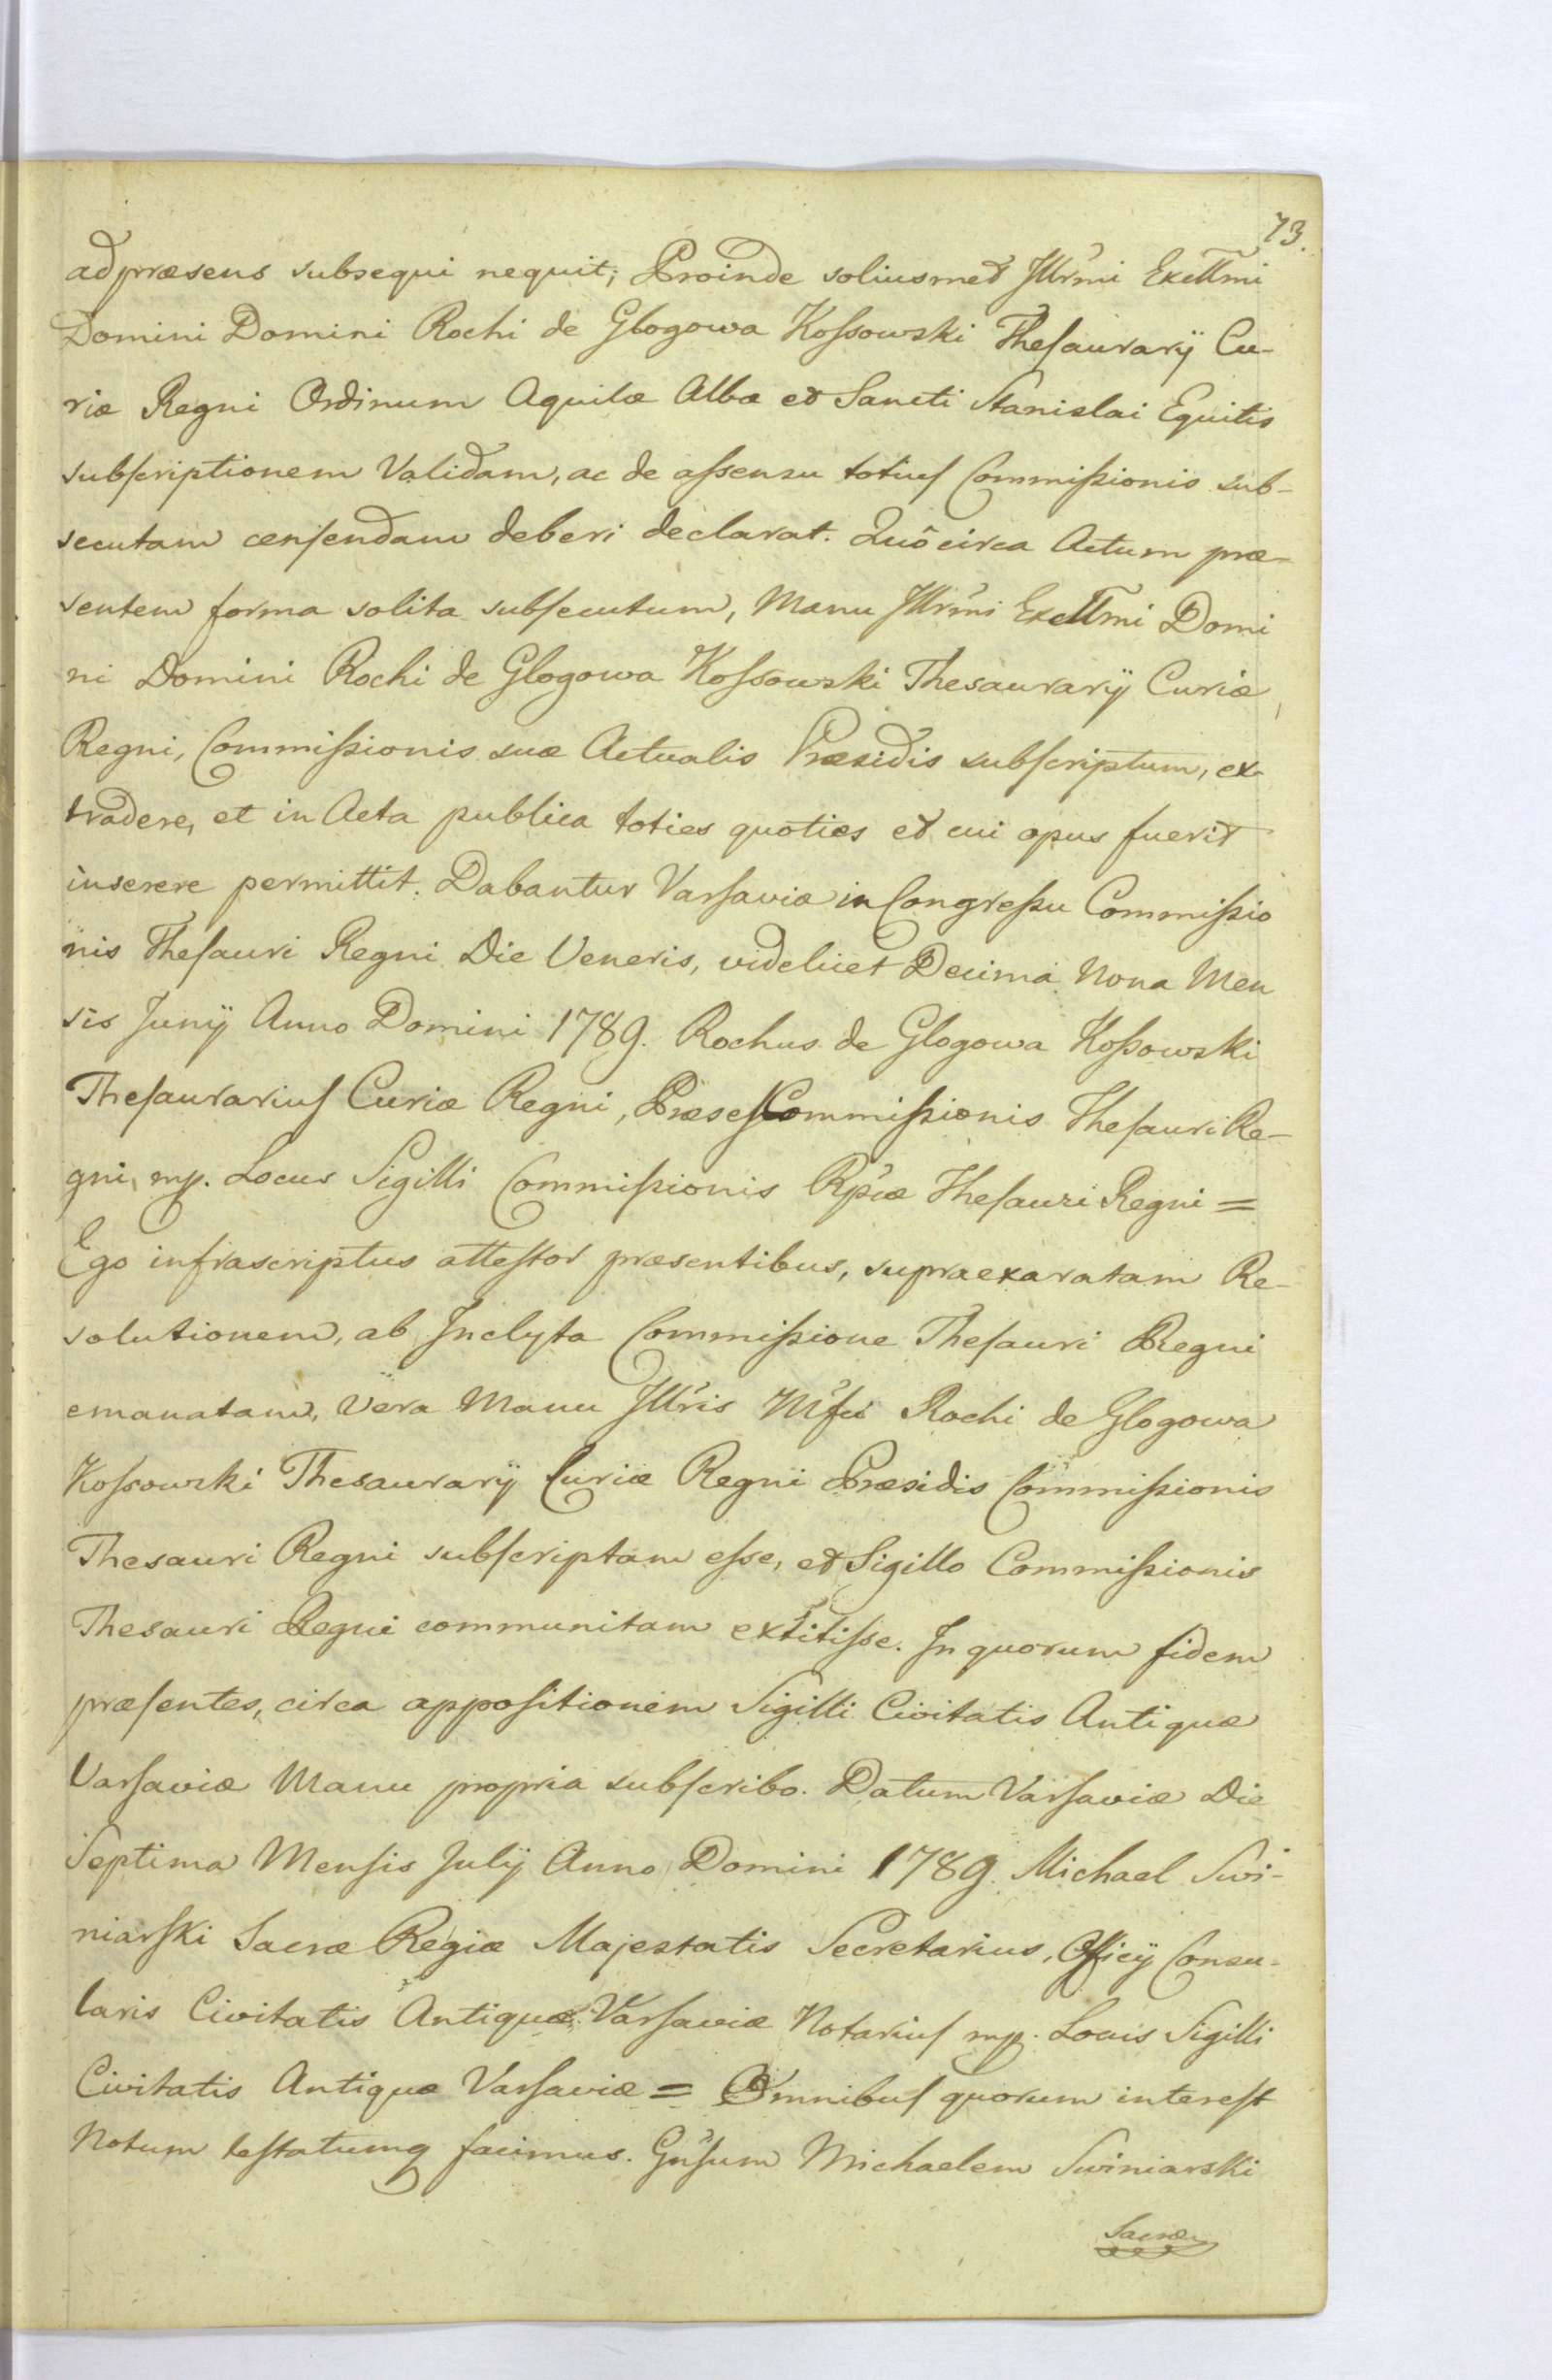 73.
ad præsens subsequi nequit; Proinde soliusmet Jllrmi Excllmi
Domini Domini Rochi de Glogowa Koſsowski Theſaurarÿ Cu-
riæ Regni Ordinum Aquilæ Albæ et Sancti Stanislai Equitis
subſcriptionem Validam, ac de aſsensu totiuſ Commiſsionis sub-
secutam cenſendam deberi declarat. Quôcirca Actum præ-
sentem forma solita subſecutum, Manu Jllrmi Excllmi Domi
ni Domini Rochi de Glogowa Koſsowski Thesaurarÿ Curiæ
Regni, Commiſsionis suæ Actualis Præsidis subſcriptum, ex-
tradere, et in Acta publica toties quoties et cui opus fuerit
inserere permittit. Dabantur Varſaviæ in Congreſsu Commiſsio
nis Theſauri Regni Die Veneris, videlicet Decima Nona Men
sis Junÿ Anno Domini 1789. Rochus de Glogowa Koſsowski
Theſaurariuſ Curiæ Regni, Præseſ Commiſsionis Theſauri Re-
gni, mp. Locus Sigilli Commiſsionis Rpcæ Theſauri Regni =
Ego infrascriptus atteſtor præsentibus, supraexaratam Re-
solutionem, ab Jnclyta Commiſsione Theſauri Regni
emanatam, Vera Manu Jllris Mfci Rochi de Glogowa
Koſsowski Thesaurarÿ Curiæ Regni Præsidis Commiſsionis
Thesauri Regni subſcriptam eſse, et Sigillo Commiſsionis
Thesauri Regni communitam extitiſse. Jn quorum fidem
præſentes, circa appoſitionem Sigilli Civitatis Antiquæ
Varſaviæ Manu propria subſcribo. Datum Varſaviæ Die
Septima Menſis Julÿ Anno Domini 1789. Michael Swi-
niarſki Sacræ Regiæ Majestatis Secretarius, Officÿ Consu-
laris Civitatis Antiquæ Varſaviæ Notariuſ mp. Locus Sigilli
Civitatis Antiquæ Varſaviæ = Omnibuſ quorum intereſt
Notum teſtatumq facimus. Gnſum Michaelem Swiniarski
Sacræ